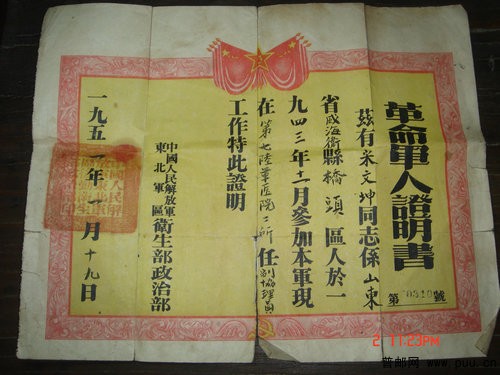 革命軍人證明書
第0510號
茲有宋文坤同志係山東
省威海衛縣橋頭區人於一
九四三年十二月參加本軍現
在第七陸軍醫院二所任副協理員
工作特此證明
中國人民解放軍
東北軍區
衛生部政治部
一九五一年一月十九日
2 11:23PM
普邮网 www.puu.cn